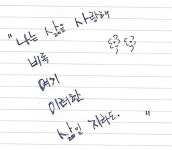 "나는 삶을 사랑해
비록
여기
이러한
삶일 지라도. "